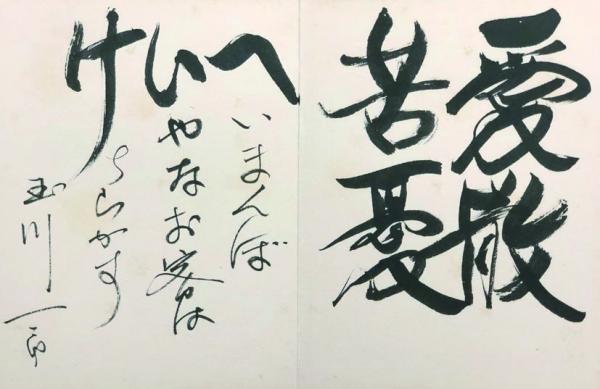 愛散
苦憂
へいまんば
いやなお客は
けちらかす
玉川一郎